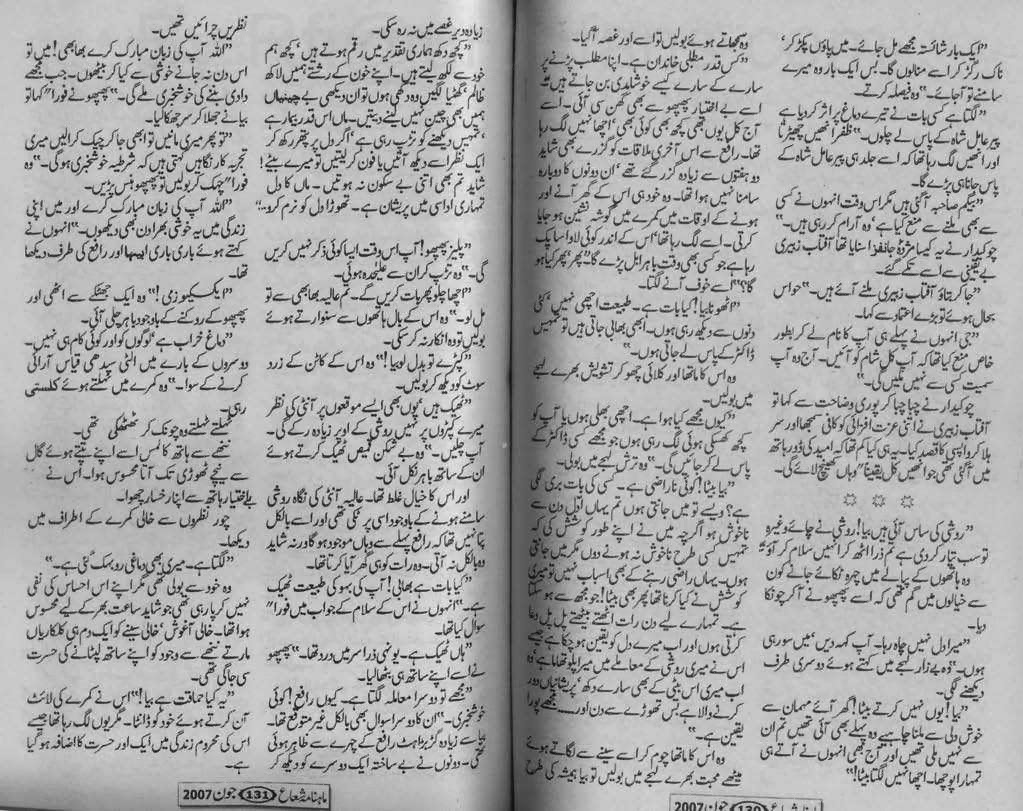 ”ایک بار شائستہ مجھے مل جائے۔ میں پاؤں پکڑ کر‘
ناک رگڑ کر اسے منالوں گا۔ بس ایک بار وہ میرے
سامنے تو آجائے۔“ وہ فیصلہ کرتے۔
”لگتا ہے کسی بات نے تیرے دماغ پر اثر کر دیا ہے
پیر عامل شاہ کے پاس لے چلوں۔“ ظفر انھیں چھیڑتا
اور انھیں لگ رہا تھا کہ اسے جلد ہی پیر عامل شاہ کے
پاس جانا ہی پڑے گا۔
”بیگم صاحبہ آگئی ہیں مگر اس وقت انہوں نے کسی
سے بھی ملنے سے منع کیا ہے‘ وہ آرام کر رہی ہیں۔“
چوکیدار نے یہ کیسا مژدہ جانفزا سنایا تھا آفتاب زبیری
بے یقینی سے اسے تکے گئے۔
”جا کر بتاؤ آفتاب زبیری ملنے آئے ہیں۔“ حواس
بحال ہوئے تو بڑے اعتماد سے کہا۔
”جی انہوں نے پہلے ہی آپ کا نام لے کر بطور
خاص منع کیا تھا کہ آپ کل شام کو آئیں۔ آج وہ آپ
سمیت کسی سے نہیں ملیں گی۔“
چوکیدار نے چبا چبا کر پوری وضاحت سے کہا تو
آفتاب زبیری نے اتنی عزت افزائی کو کافی سمجھا اور سر
ہلا کر واپسی کا قصد کیا۔ یہ ہی کیا کم تھا کہ امید کی ڈور ہاتھ
میں آگئی تھی جو انھیں کل یقیناً ”وہاں کھینچ لائے گی۔
☼ ☼ ☼
”روشی کی ساس آئی ہیں بیا! روشی نے چائے وغیرہ
تو سب تیار کر دی ہے تم ذرا اٹھ کر انہیں سلام کر آؤ۔“
وہ ہاتھوں کے پیالے میں چہرہ ٹکائے جانے کون
سے خیالوں میں گم تھی کہ اسے پھپھو نے آکر چونکا
دیا۔
”میرا دل نہیں چاہ رہا۔ آپ کہہ دیں‘ میں سو رہی
ہوں۔“ وہ بے زار لہجے میں کہتے ہوئے دوسری طرف
دیکھنے لگی۔
”بیا! یوں نہیں کرتے بیٹا! گھر آئے مہمان سے
خوش دلی سے ملنا چاہیے وہ پہلے بھی آئی تھیں تم ان
سے نہیں ملی تھیں اور آج بھی انہوں نے آتے ہی
تمہارا پوچھا۔ اچھا نہیں لگتا بیٹا!“
وہ سمجھاتے ہوئے بولیں تو اسے اور غصہ آگیا۔
”کس قدر مطلبی خاندان ہے۔ اپنا مطلب پڑنے پر
سارے کے سارے کیسے خوشامدی بن جاتے ہیں۔“
اسے بے اختیار پھپھو سے بھی گھن سی آئی۔ اسے
آج کل یوں بھی کچھ بھی کوئی بھی‘ اچھا نہیں لگ رہا
تھا۔ رافع سے اس آخری ملاقات کو گزرے بھی شاید
دو ہفتوں سے زیادہ گزر گئے تھے‘ ان دونوں کا دوبارہ
سامنا نہیں ہوا تھا۔ وہ خود ہی اس کے گھر آنے اور
ہونے کے اوقات میں کمرے میں گوشہ نشین ہو جایا
کرتی۔ اسے لگ رہا تھا‘ اس کے اندر کوئی لاوا سا پک
رہا ہے جو کسی بھی وقت باہر ابل پڑے گا۔ ”پھر‘ پھر کیا ہو
گا؟“ اسے خوف آنے لگتا۔
”اٹھو نا بیا! کیا بات ہے۔ طبیعت اچھی نہیں‘ کئی
دنوں سے دیکھ رہی ہوں۔ ابھی بھابی جاتی ہیں تو تمہیں
ڈاکٹر کے پاس لے جاتی ہوں۔“
وہ اس کا ماتھا اور کلائی چھو کر تشویش بھرے لہجے
میں بولیں۔
”کیوں مجھے کیا ہوا ہے۔ اچھی بھلی ہوں یا آپ کو
کچھ کھسکی ہوئی لگ رہی ہوں جو مجھے کسی ڈاکٹر کے
پاس لے کر جائیں گی۔“ وہ ترش لہجے میں بولی۔
”بیا بیٹا! کوئی ناراضی ہے۔ کسی کی بات بری لگی
ہے؟ ویسے تو میں جانتی ہوں تم یہاں اول دن سے
ناخوش ہو اگرچہ میں نے اپنے طور کوشش کی کہ
تمہیں کسی طرح ناخوش نہ ہونے دوں مگر میں جانتی
ہوں۔ یہاں راضی رہنے کے بھی اسباب نہیں تو میری
کوشش نے کیا کرنا تھا پھر بھی بیٹا! جو مجھ سے ہو سکتا
ہے۔ تمہارے لیے دن رات اٹھتے بیٹھتے پل پل دعا
کرتی ہوں اور اب میرے دل کو یقین ہو چکا ہے جیسے
اس نے میری روشی کے معاملے میں میرا پلو تھاما ہے‘ وہ
اب میری اس بیٹی کے بھی سارے دکھ‘ پریشانیاں دور
کرنے والا ہے بس تھوڑے سے دن اور....... مجھے پورا
یقین ہے۔“
وہ اس کا ماتھا چوم کر اسے سینے سے لگاتے ہوئے
میٹھے محبت بھرے لہجے میں بولیں تو بیا ہمیشہ کی طرح
ماہنامہ شعاع 130 جون 2007
زیادہ دیر غصے میں نہ رہ سکی۔
”کچھ دکھ ہماری تقدیر میں رقم ہوتے ہیں‘ کچھ ہم
خود سے لکھ لیتے ہیں۔ اپنے خون کے رشتے ہمیں لاکھ
ظالم‘ گھٹیا لگیں وہ دکھی ہوں تو ان دیکھی بے چینیاں
ہمیں بھی چین نہیں لینے دیتیں۔ ماں اس قدر بیمار ہے
‘ تمہیں دیکھنے کو تڑپ رہی ہے‘ اگر دل پر پتھر رکھ کر
ایک نظر اسے دیکھ آتیں یا فون کر لیتیں تو میرے بیٹے!
شاید تم بھی اتنی بے سکون نہ ہوتیں۔ ماں کا دل
تمہاری اداسی میں پریشان ہے۔ تھوڑا دل کو نرم کرو...“
”پلیز پھپھو! آپ اس وقت ایسا کوئی ذکر نہیں کریں
گی۔“ وہ تڑپ کر ان سے علیحدہ ہوئی۔
”اچھا چلو پھر بات کریں گے۔ تم عالیہ بھابھی سے تو
مل لو۔“ وہ اس کے بال ہاتھوں سے سنوارتے ہوئے
بولیں تو وہ انکار نہ کر سکی۔
”کپڑے تو بدل لو بیا!“ وہ اس کے کاٹن کے زرد
سوٹ کو دیکھ کر بولیں۔
”ٹھیک ہیں‘ یوں بھی ایسے موقعوں پر آنٹی کی نظر
میرے کپڑوں پر نہیں روشی کے اوپر زیادہ رکے گی۔
آپ چلیں۔“ وہ بے شکن قمیص ٹھیک کرتے ہوئے
ان کے ساتھ باہر نکل آئی۔
اور اس کا خیال غلط تھا۔ عالیہ آنٹی کی نگاہ روشی
سامنے ہونے کے باوجود اسی پر ٹکی تھی اور اسے بالکل
پتا نہیں تھا کہ رافع پہلے سے وہاں موجود ہو گا ورنہ شاید
وہ بالکل نہ آتی۔ وہ رات کو ہی گھر آیا کرتا تھا۔
”کیا بات ہے بھابی! آپ کی بہو کی طبیعت ٹھیک
ہے۔“ انہوں نے اس کے سلام کے جواب میں فورا ”
سوال کیا تھا۔
”ہاں ٹھیک ہے۔ یونہی ذرا سر میں درد تھا۔“ پھپھو
نے اسے اپنے ساتھ ہی بٹھالیا۔
”مجھے تو دوسرا معاملہ لگتا ہے۔ کیوں رافع! کوئی
خوشخبری۔“ ان کا دوسرا سوال بھی بالکل غیر متوقع تھا۔
بیا سے زیادہ گڑبڑاہٹ رافع کے چہرے سے ظاہر ہوئی
تھی۔ دونوں نے بے ساختہ ایک دوسرے کو دیکھ کر
نظریں چرائیں تھیں۔
”اللہ آپ کی زبان مبارک کرے بھابھی! میں تو
اس دن نہ جانے خوشی سے کیا کر بیٹھوں۔ جب مجھے
دادی بننے کی خوشخبری ملے گی۔“ پھپھو نے فورا ” کہا تو
بیا نے جھلا کر سر جھکا لیا۔
”تو پھر میری مانیں تو ابھی جا کر چیک کرالیں میری
تجربہ کار نگاہیں کہتی ہیں کہ شرطیہ خوشخبری ہوگی۔“ وہ
فورا ” چہک کر بولیں تو پھپھو ہنس پڑیں۔
”اللہ آپ کی زبان مبارک کرے اور میں اپنی
زندگی میں یہ خوشی بھرا دن بھی دیکھوں۔“ انہوں نے
کہتے ہوئے باری باری ابیہا اور رافع کی طرف دیکھا
تھا۔
”ایکسکیوزمی!“ وہ ایک جھٹکے سے اٹھی اور
پھپھو کے روکنے کے باوجود باہر چلی آئی۔
”دماغ خراب ہے‘ لوگوں کو اور کوئی کام ہی نہیں۔
دوسروں کے بارے میں الٹی سیدھی قیاس آرائی
کرنے کے سوا۔“ وہ کمرے میں ٹہلتے ہوئے کلستی
رہی۔
ٹہلتے ٹہلتے وہ چونک کر ٹھٹھکی تھی۔
ننھے سے ہاتھ کا لمس اسے اپنے تپتے ہوئے گال
سے نیچے ٹھوڑی تک آتا محسوس ہوا۔ اس نے
بے اختیار ہاتھ سے اپنا رخسار چھوا۔
چور نظروں سے خالی کمرے کے اطراف میں
دیکھا۔
”لگتا ہے۔ میری بھی دماغی رو بہک گئی ہے۔“
وہ خود سے بولی تھی مگر اپنے اس احساس کی نفی
نہیں کر پا رہی تھی جو شاید ساعت بھر کے لیے محسوس
ہوا تھا۔ خالی آغوش‘ خالی سینے کو ایک دم ہی کلکاریاں
مارتے ننھے سے وجود کو اپنے ساتھ لپٹانے کی حسرت
سی جاگی تھی۔
”یہ کیا حماقت ہے بیا!“ اس نے کمرے کی لائٹ
آن کرتے ہوئے خود کو ڈانٹا۔ مگر یوں لگ رہا تھا جیسے
اس کی محروم زندگی میں ایک اور حسرت کا اضافہ ہو گیا
ہے۔
ماہنامہ شعاع 131 جون 2007